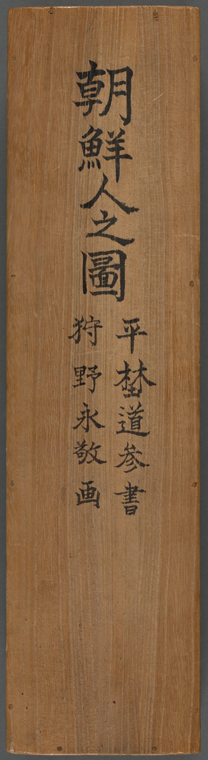 朝鮮人之圖
平埜道参書
狩野永敬画